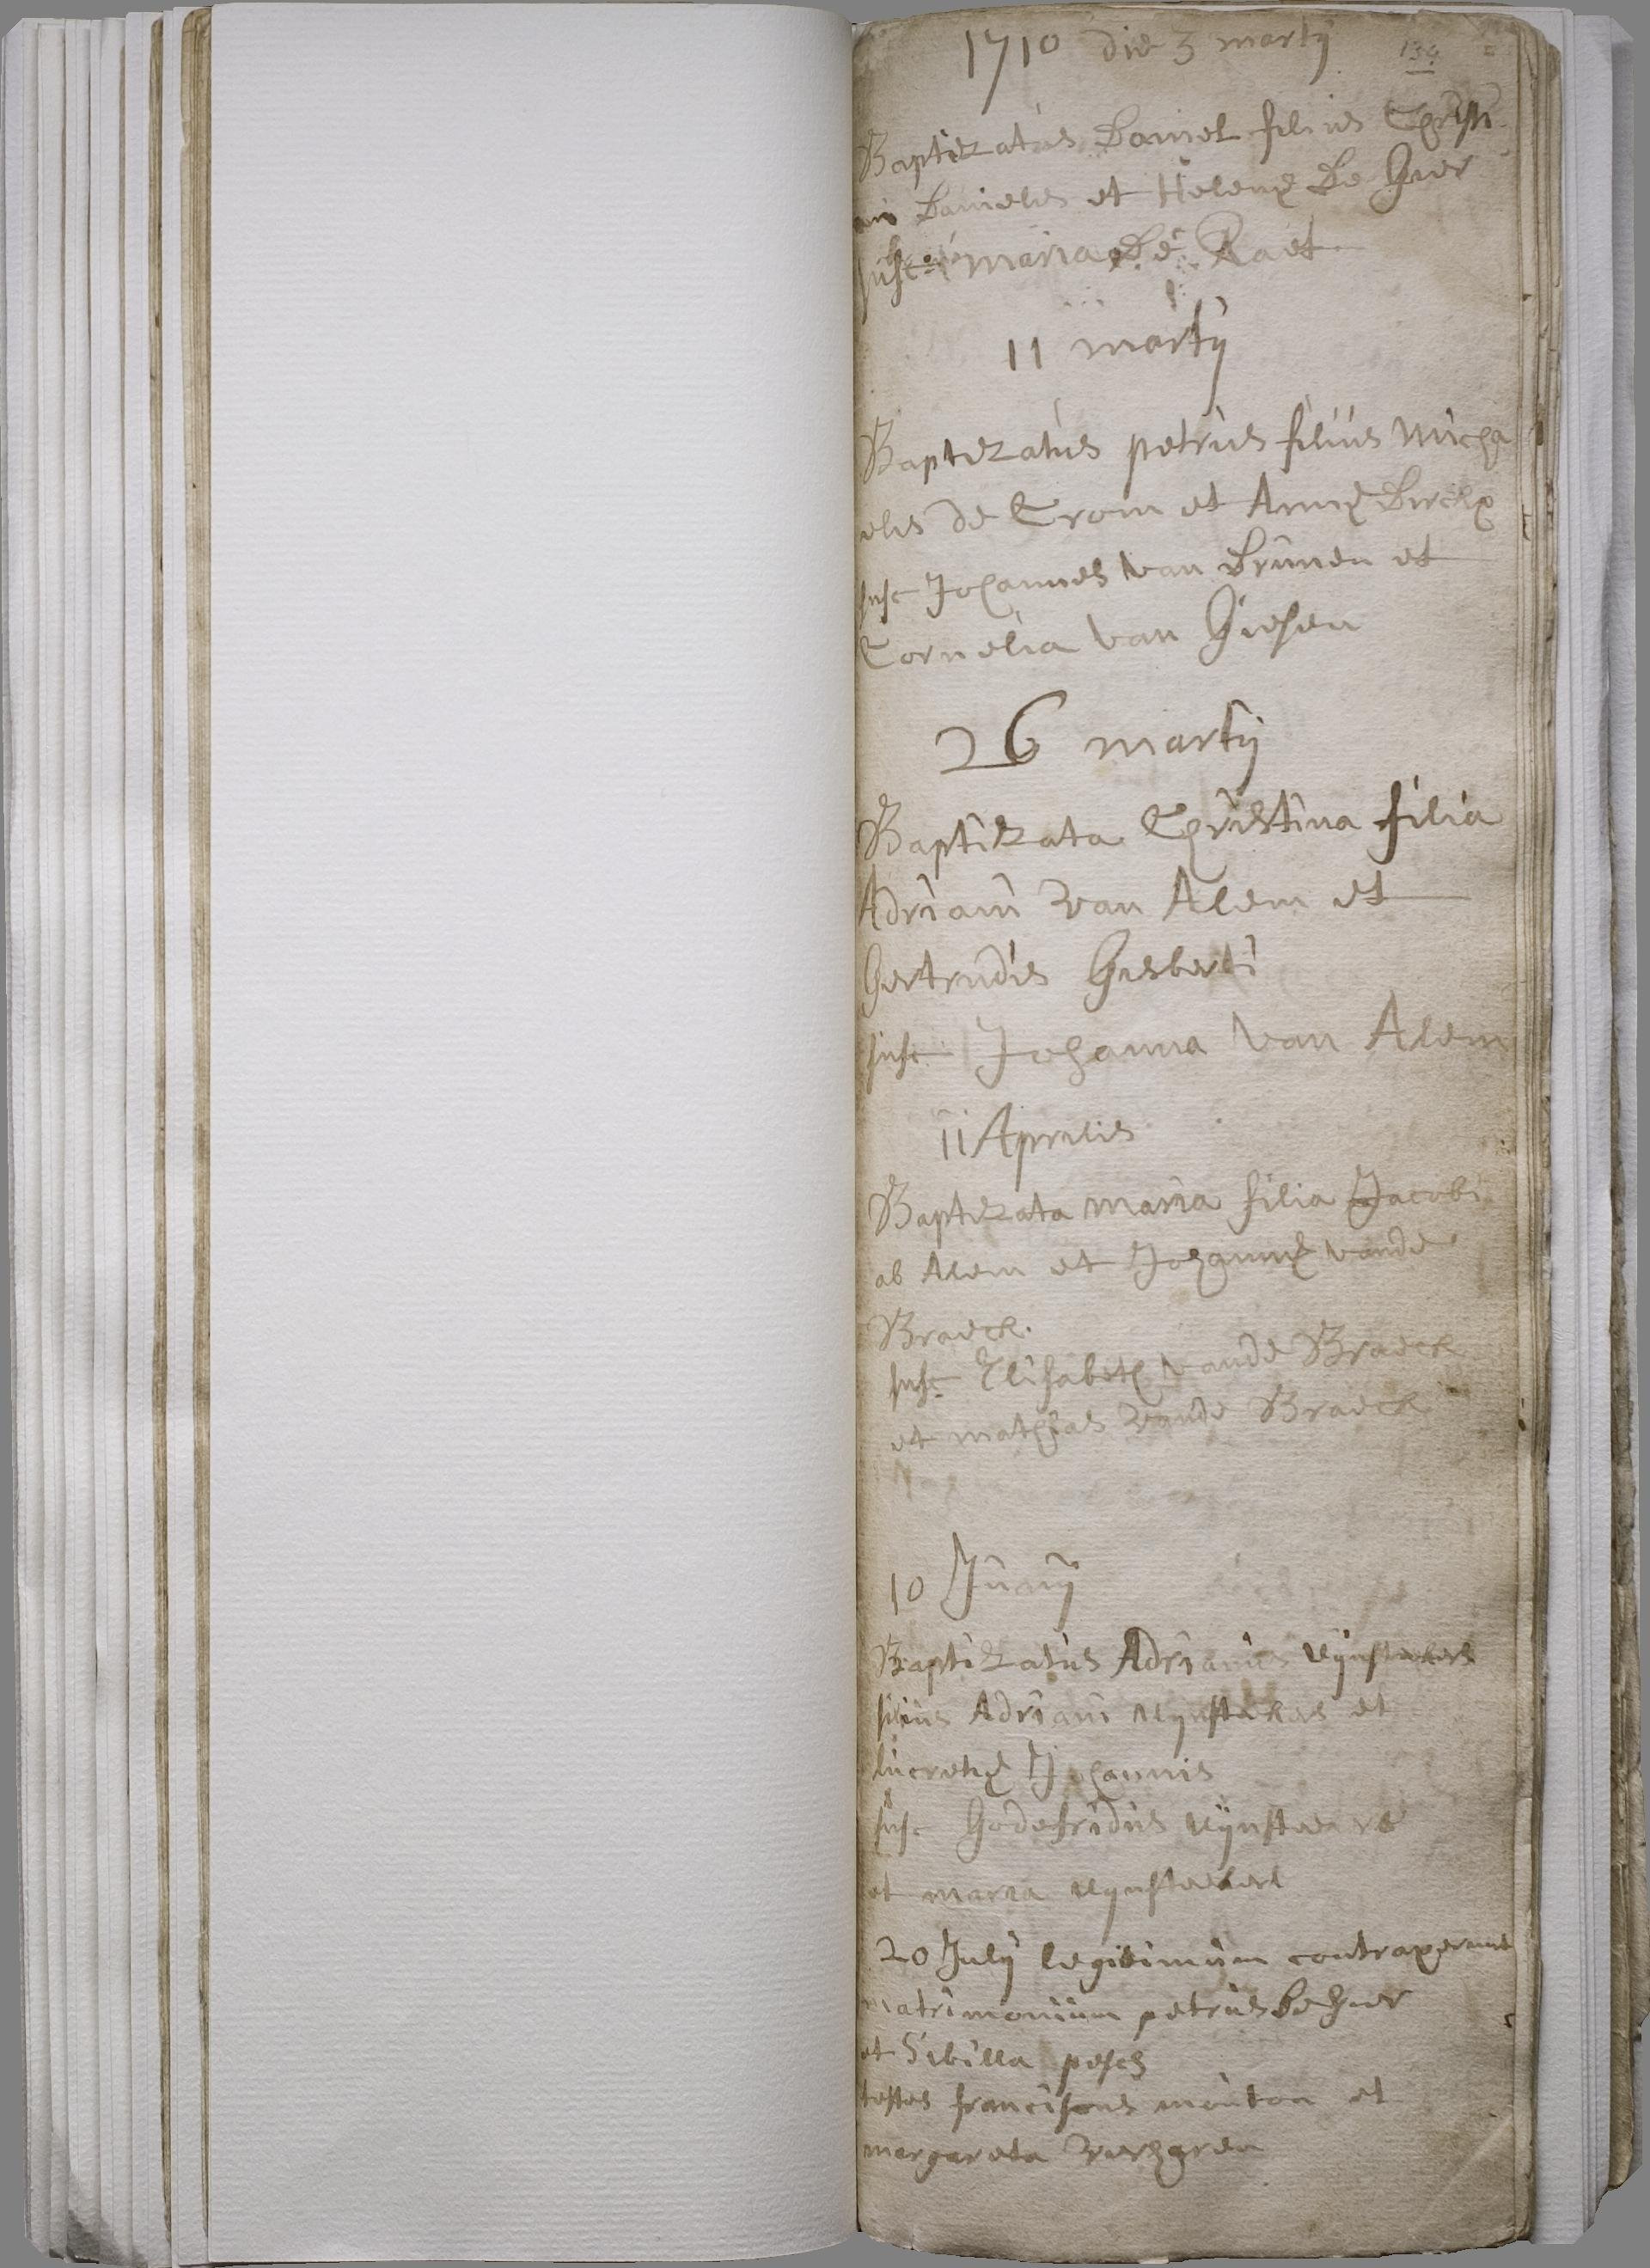 1710 die 3 martij 139
Baptizatus Daniel filius Christi-
ani Danielis et Helenę De Gier
susc. maria De Raet
11 martij
Baptizatus petrus filius Micha
elis de Crom et Annę Dirckx
susc Johannes van Drunen et
Cornelia van Giesen
26 martij
Baptizata Christina filia
Adriani van Alem et
Gertrudis Gisberti
susc. Johanna van Alem
11 Aprilis
Baptizata maria filia Jacobi
ab Alem et Johannę vande
Braeck.
susc Elisabeth vande Braeck
et mathias vande Braeck
10 Junij
Baptizatus Adrianus
filius Adriani et
lucretię Johannis
susc Godefridus
et maria
20 Julij legitimum contraxerunt
matrimonium petrus
et Sibilla pesch
testes franciscus mouton et
margareta